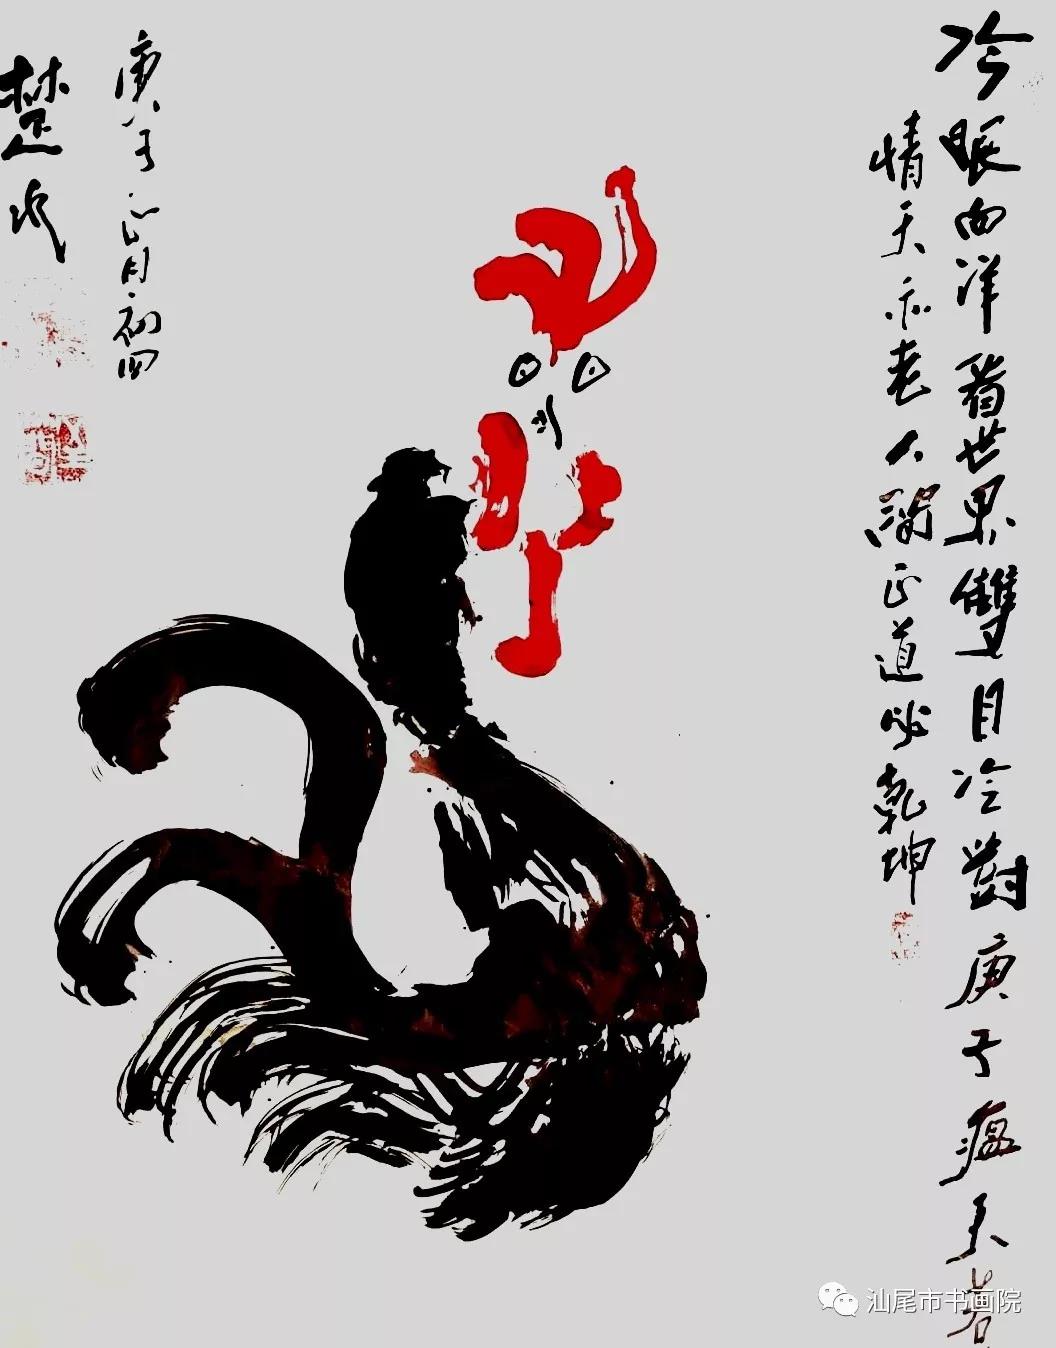 冷眼向洋看世界雙目冷對庚子瘟天若
情天亦老人間正道必乾坤
庚子正月初四
楚
汕尾市书画院